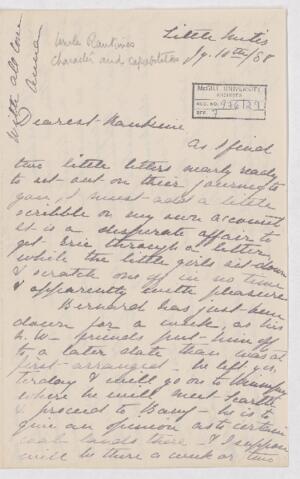 Little Metis
Jy. 10th/88
Uncle Rankine's
character and capabilities
With all love
Anna
McGILL UNIVERSITY
ARCHIVES
ACC. NO.
REF.
Dearest Rankine
As I find
two little letters nearly ready
to set out on their journey to
you, I must add a little
scribble on my own account
It is a desperate affair to
get Eric through a letter
while the little girls sit down
& scratch one off in no time
& apparently with pleasure
Bernard has just been
down for a week, as his
N.W. friends put him off
to a later date than was at
first arranged. He left yes-
terday & will go on to
where he will meet
& proceed to Banff - he is to
give an opinion as to certain
coal lands there - & I suppose
will be there a week or two